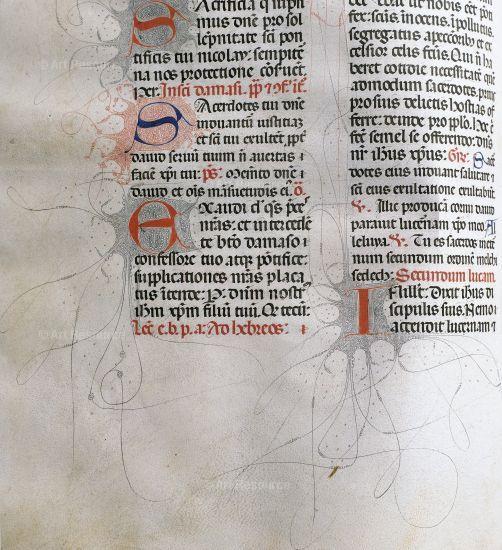 Sctifica q̄ in pri
mus dn̄e pro sol
lēpnitate scī pon
tificis tui nicolay. sempitē
na nos protectione cōfuēt.
per. In scī damasi. pp̄
Sacerdotes tui dn̄e
induantur iusticiaz
et scī tui exultēt. ꝓpt̄
dauid seruū tuum ñ auertas
faciē xp̄i tui. ps. Memēto dn̄e
dauid et oīs māsuetudīs eī. ō.
Exaudi d̄qs p̄ces
nr̄as: et intercedē
te btō damaso
confessore tuo atqz pōtifice:
supplicationes nr̄as placa
tus ītende. P. dnīm nostr̄
ihm xp̄m filiū tuū. Q tecū
Lcō. e. b. p. a. Ad hebreos:
ut nobis eēt pon
fex: scūs. inocens. ipollutus.
segregatus apeccōribȝ et ex
celsior celis fctūs. Qui ñ ha
beret cottidie necessitatē qē
admodum sacerdotes. primū
pro suis delictis hostias of
ferre: deinde pro pplo. Hoc ē
fecit semel se offerendo. dn̄s
nr̄ ihūs xp̄us: Gr̄. Sac̄
dotes eius induant salutare
scī eius exultatione exultabūt
V. Illuc producā cornu dauid
paraui lucernam xp̄o meo. Al
leluya. V. Tu es sacerdos in etē
num secundum ordinē melchi
sedech: Secundum lucam
In illt̄. Dixit ihūs di
scipulis suis. Nemo
accendit lucernam
© Art Resource
© Art Resource
© Art Resource
© Art Resource